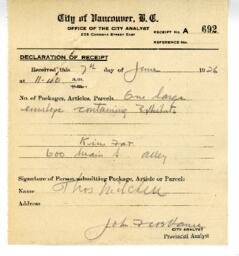 City of Vancouver, B. C.
OFFICE OF THE CITY ANALYST
RECEIPT No. A 692
REFERENCE No.
DECLARATION of RECEIPT
Received this 7th day of June 1926
at 11.40 a.m.
No. of Packages, Articles, Parcels. One large
envelope containing Exhibits
Kin Far
600 Main St alley
Signature of Person submitting Package, Article or Parcel:
Name Thos Mitchell
Address
CITY ANALYST
Provincial Analyst